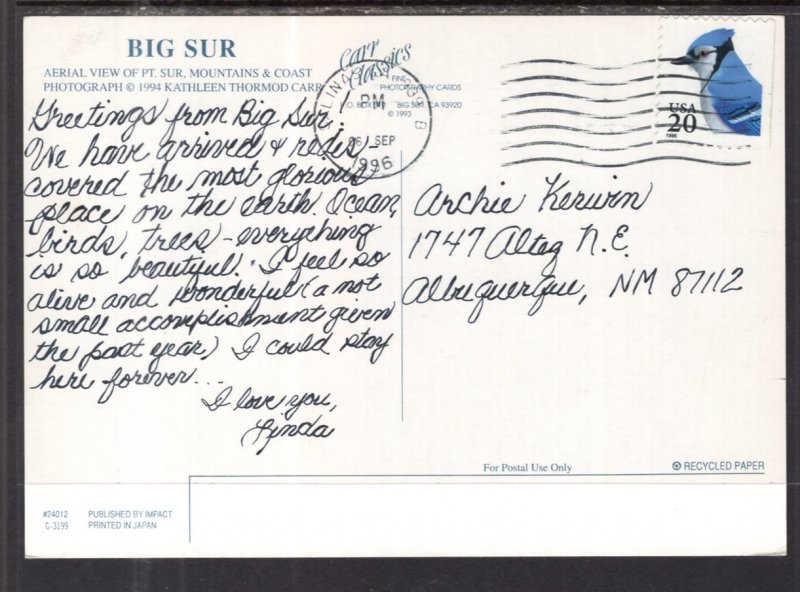 BIG SUR
AERIAL VIEW OF PT. SUR, MOUNTAINS & COAST
PHOTOGRAPH © 1994 KATHLEEN THORMOD CARR
Carr
Classics
FINE
PHOTOGRAPHY CARDS
P.O. BOX
BIG SUR, CA 93920
© 1993
PM
SEP
1996
USA
20
1996
Greetings from Big Sur.
We have arrived & redis-
covered the most glorious
place on the earth. Ocean,
birds, trees - everything
is so beautiful. I feel so
alive and wonderful (a not
small accomplishment given
the past year) I could stay
here forever...
I love you,
Linda
Archie Kerwin
1747 Altez N.E.
Albuquerque, NM 87112
For Postal Use Only
RECYCLED PAPER
#24012 PUBLISHED BY IMPACT
G-3199 PRINTED IN JAPAN